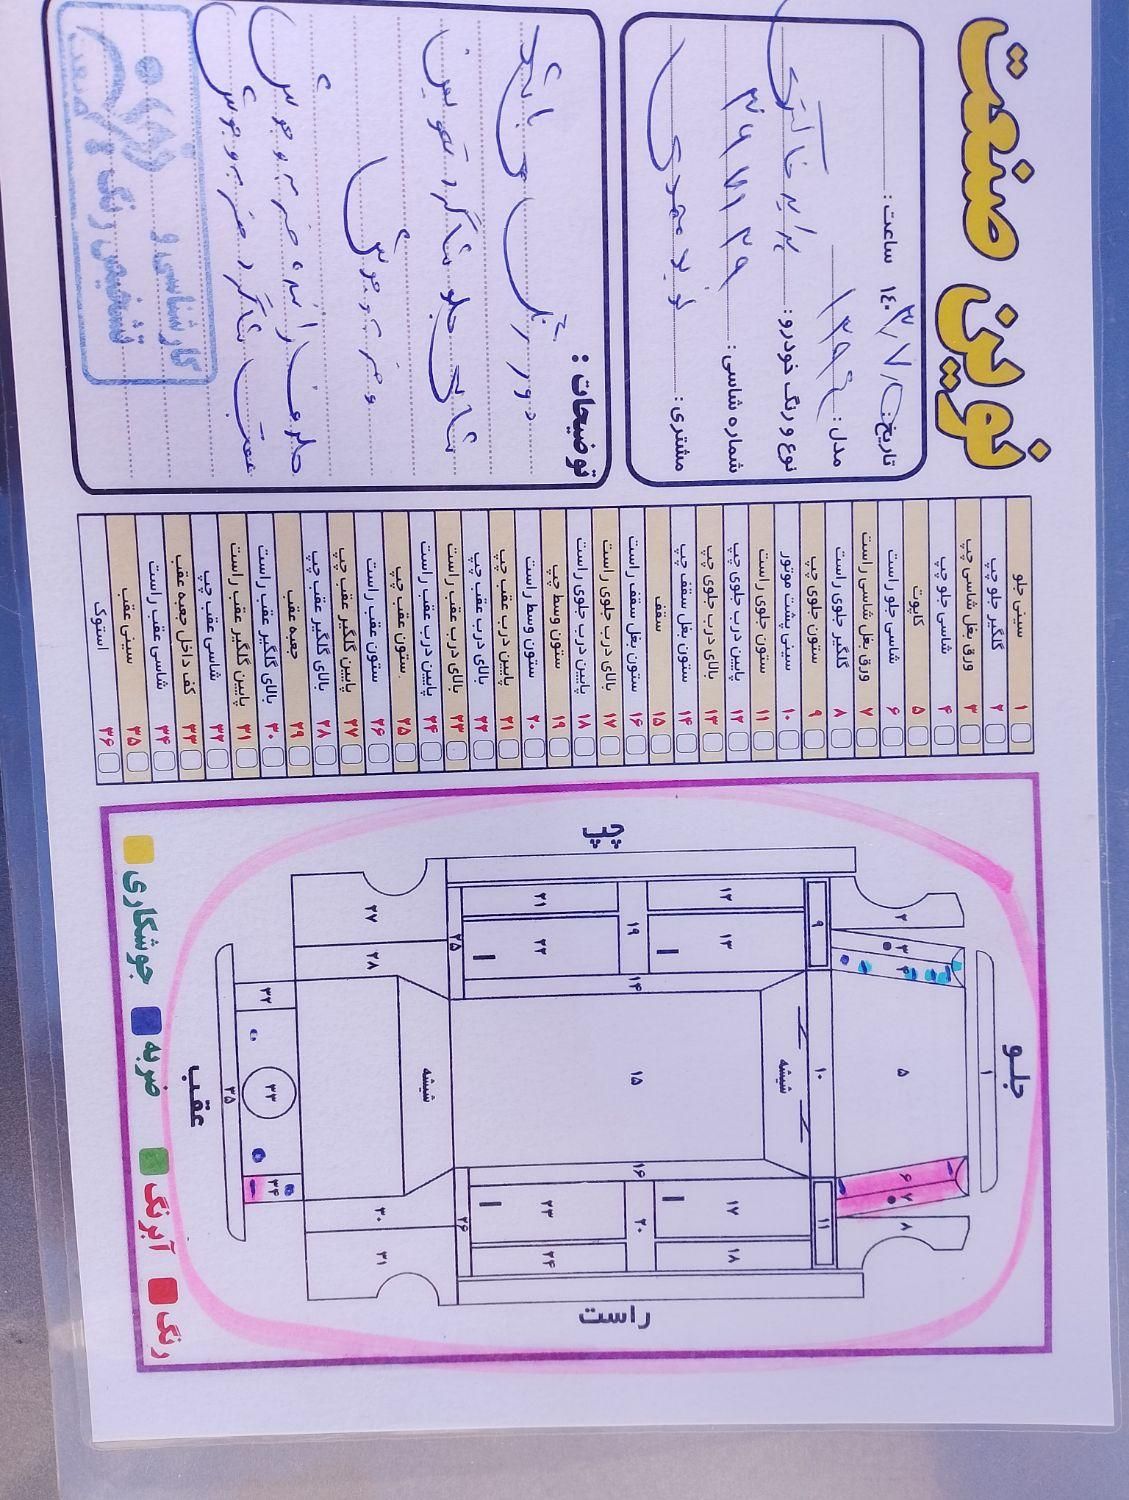 نوین صنعت
تاریخ: ۱۴۰۳/۷/۵ ساعت:
مدل: ۱۳۹۴
نوع و رنگ خودرو: پراید خاکستری
شماره شاسی:
مشتری: نوید مهدی
توضیحات:
دور رنگ می باشد
شاسی جلو شاگرد تعویض
و ضربه و جوش
جلو راننده ضربه و جوش
عقب شاگرد ضربه و جوش
کارشناسی و
تشخیص رنگ
سینی جلو ۱
گلگیر جلو چپ ۲
ورق بغل شاسی چپ ۳
شاسی جلو چپ ۴
کاپوت ۵
شاسی جلو راست ۶
ورق بغل شاسی راست ۷
گلگیر جلوی راست ۸
ستون جلوی چپ ۹
سینی پشت موتور ۱۰
ستون جلوی راست ۱۱
پایین درب جلوی چپ ۱۲
بالای درب جلوی چپ ۱۳
ستون بغل سقف چپ ۱۴
سقف ۱۵
ستون بغل سقف راست ۱۶
بالای درب جلوی راست ۱۷
پایین درب جلوی راست ۱۸
ستون وسط چپ ۱۹
ستون وسط راست ۲۰
پایین درب عقب چپ ۲۱
بالای درب عقب چپ ۲۲
بالای درب عقب راست ۲۳
پایین درب عقب راست ۲۴
ستون عقب چپ ۲۵
ستون عقب راست ۲۶
پایین گلگیر عقب چپ ۲۷
بالای گلگیر عقب چپ ۲۸
جعبه عقب ۲۹
بالای گلگیر عقب راست ۳۰
پایین گلگیر عقب راست ۳۱
شاسی عقب چپ ۳۲
کف داخل جعبه عقب ۳۳
شاسی عقب راست ۳۴
سینی عقب ۳۵
استوک ۳۶
جلو
۱
چپ
۲ ۳ ۴ ۵ ۶ ۷ ۸
۹ ۱۰ ۱۱
شیشه
۱۲ ۱۳ ۱۷ ۱۸
۱۴ ۱۵ ۱۶
۱۹ ۲۰
۲۱ ۲۲ ۲۳ ۲۴
۲۵ شیشه ۲۶
۲۷ ۲۸ ۳۰ ۳۱
۳۲ ۳۳ ۳۴
۳۵
راست
عقب
جوشکاری ضربه آبرنگ رنگ